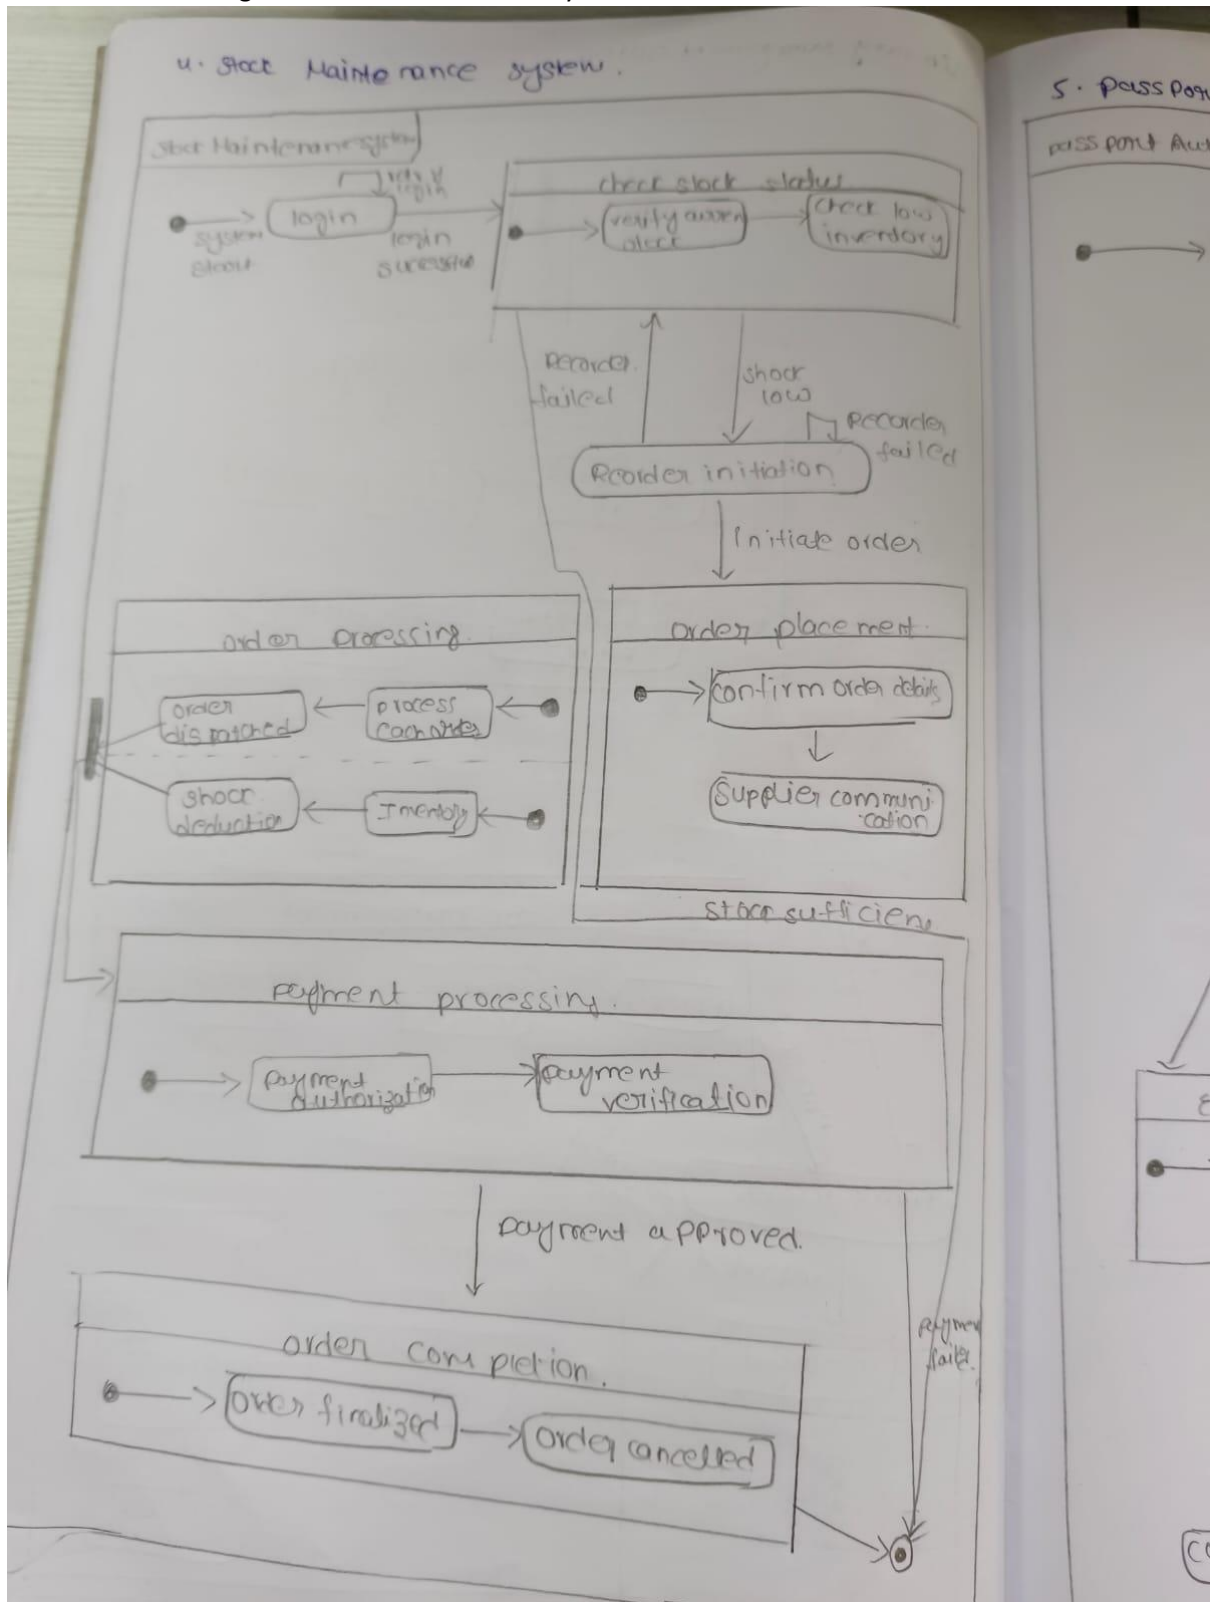 4. Stock Maintenance system.
Stock Maintenance system
login
system
login
sucessful
check stock status
verify curren
stock
check low
inventory
Recorder.
failed
shock
low
Recorder
failed
Reorder initiation
Initiate order
order processing.
order placement.
order
dispatched
process
each order
confirm order details
shock
deduction
Inventory
Supplier communi
cation
stock sufficien
payment processing.
payment
authorization
payment
verification
payment approved.
payment
failed.
order completion.
order finalized
order cancelled
5. passpor
passport Aut